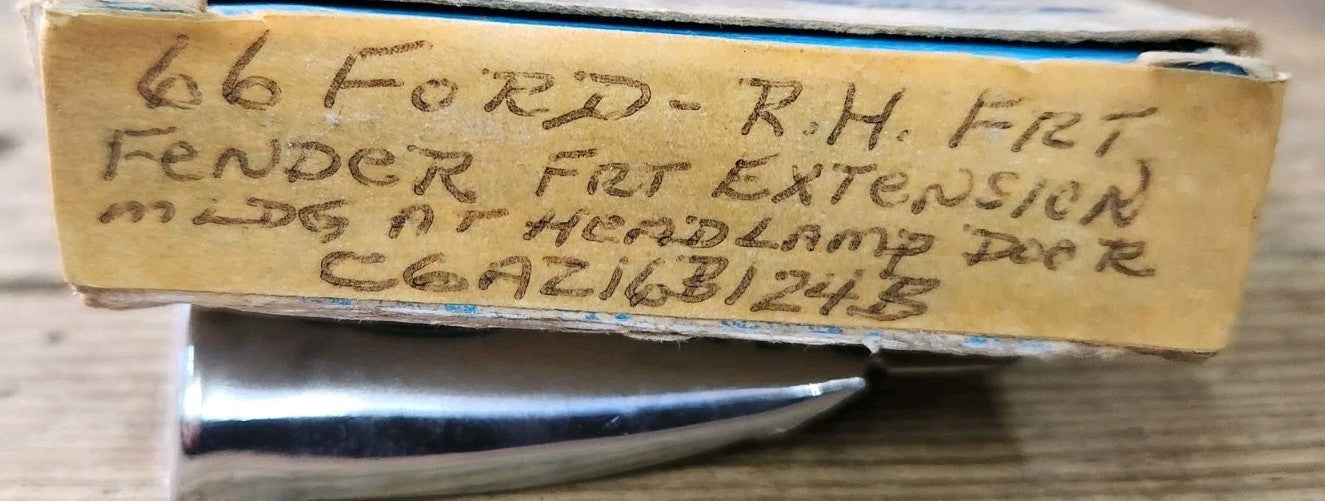 66 FORD - R.H. FRT
FENDER FRT EXTENSION
MLDG AT HEADLAMP DOOR
C6AZ16B124B